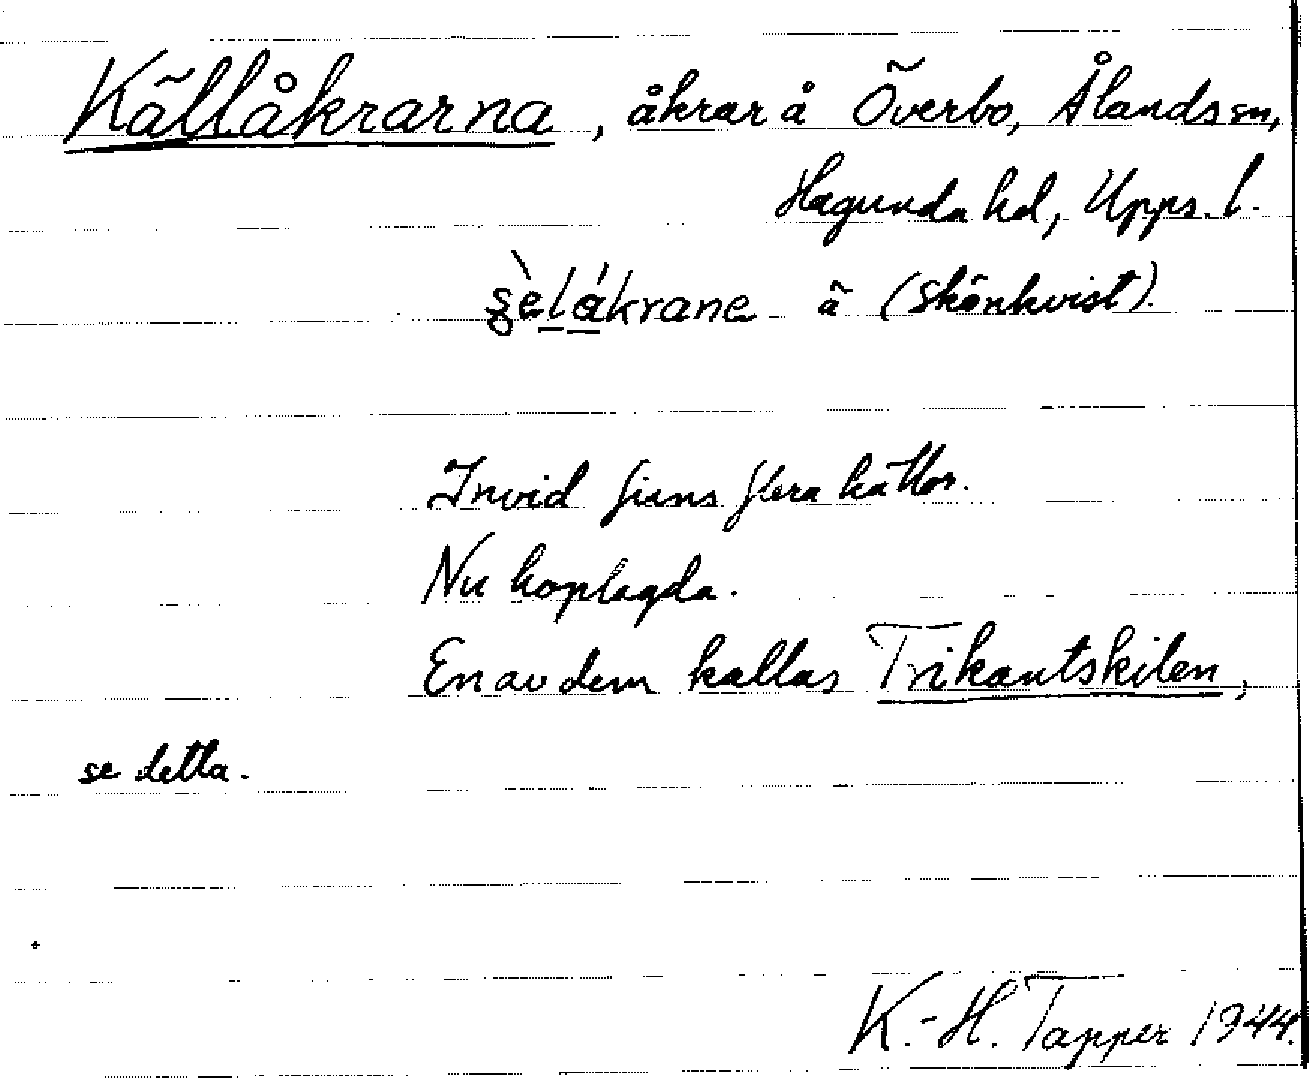 Källåkrarna, åkrar å Överbo, Ålands sn,
Hagunda hd, Upps. l.
şèl̠á̠krane ä (Skönkvist).
Invid finns flera källor.
Nu hoplagda.
En av dem kallas Trikantskilen,
se detta.
K.-H. Tapper 1944.